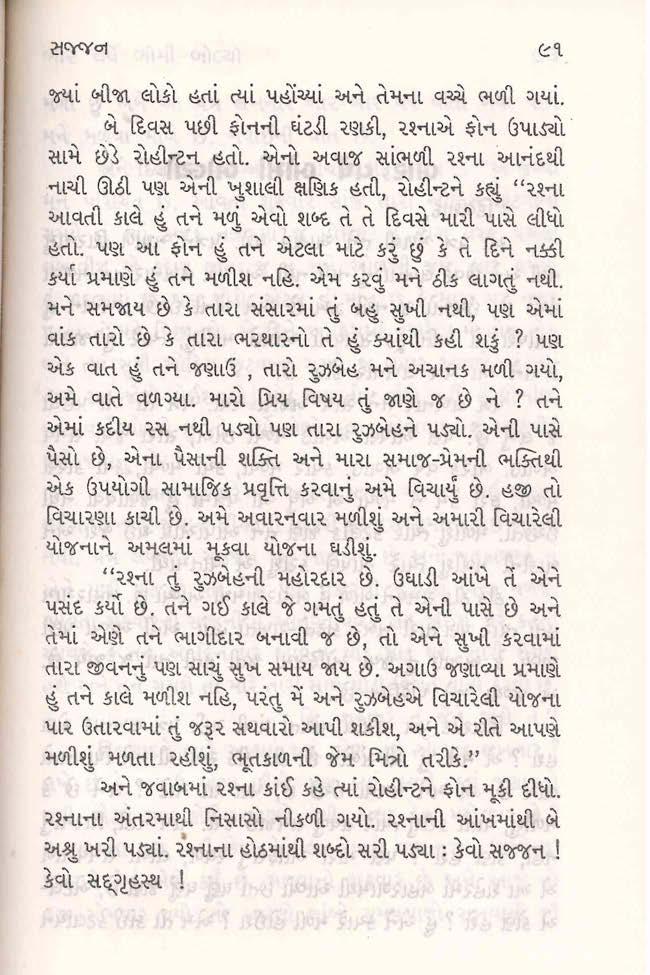 સજ્જન ૯૧
જ્યાં બીજા લોકો હતાં ત્યાં પહોંચ્યાં અને તેમના વચ્ચે ભળી ગયાં.
બે દિવસ પછી ફોનની ઘંટડી રણકી, રશ્નાએ ફોન ઉપાડ્યો
સામે છેડે રોહીન્ટન હતો. એનો અવાજ સાંભળી રશ્ના આનંદથી
નાચી ઊઠી પણ એની ખુશાલી ક્ષણિક હતી, રોહીન્ટને કહ્યું ‘‘રશ્ના
આવતી કાલે હું તને મળું એવો શબ્દ તે તે દિવસે મારી પાસે લીધો
હતો. પણ આ ફોન હું તને એટલા માટે કરું છું કે તે દિને નક્કી
કર્યા પ્રમાણે હું તને મળીશ નહિ. એમ કરવું મને ઠીક લાગતું નથી.
મને સમજાય છે કે તારા સંસારમાં તુ બહુ સુખી નથી, પણ એમાં
વાંક તારો છે કે તારા ભરથારનો તે હું ક્યાંથી કહી શકું ? પણ
એક વાત હું તને જણાઉં , તારો રુઝબેહ મને અચાનક મળી ગયો,
અમે વાતે વળગ્યા. મારો પ્રિય વિષય તું જાણે જ છે ને ? તને
એમાં કદીય રસ નથી પડ્યો પણ તારા રુઝબેહને પડ્યો. એની પાસે
પૈસો છે, એના પૈસાની શક્તિ અને મારા સમાજ-પ્રેમની ભક્તિથી
એક ઉપયોગી સામાજિક પ્રવૃત્તિ કરવાનું અમે વિચાર્યું છે. હજી તો
વિચારણા કાચી છે. અમે અવારનવાર મળીશું અને અમારી વિચારેલી
યોજનાને અમલમાં મૂકવા યોજના ઘડીશું.
‘‘રશ્ના તું રુઝબેહની મહોરદાર છે. ઉઘાડી આંખે તેં એને
પસંદ કર્યો છે. તને ગઈ કાલે જે ગમતું હતું તે એની પાસે છે અને
તેમાં એણે તને ભાગીદાર બનાવી જ છે, તો એને સુખી કરવામાં
તારા જીવનનું પણ સાચું સુખ સમાય જાય છે. અગાઉ જણાવ્યા પ્રમાણે
હું તને કાલે મળીશ નહિ, પરંતુ મેં અને રુઝબેહએ વિચારેલી યોજના
પાર ઉતારવામાં તું જરૂર સથવારો આપી શકીશ, અને એ રીતે આપણે
મળીશું મળતા રહીશું, ભૂતકાળની જેમ મિત્રો તરીકે.’’
અને જવાબમાં રશ્ના કાંઈ કહે ત્યાં રોહીન્ટને ફોન મૂકી દીધો.
રશ્નાના અંતરમાથી નિસાસો નીકળી ગયો. રશ્નાની આંખમાંથી બે
અશ્રુ ખરી પડ્યાં. રશ્નાના હોઠમાંથી શબ્દો સરી પડ્યા : કેવો સજજન !
કેવો સદ્‌ગૃહસ્થ !